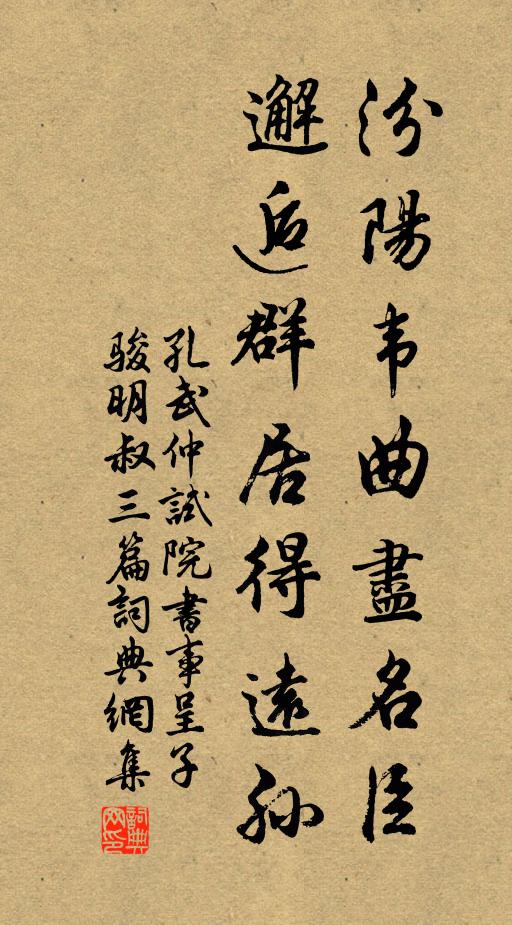 汾陽韦曲盡名臣
邂逅群居得遠孫
孔武仲試院書事呈子
駿明叔三篇詞典網集
詞典
网印